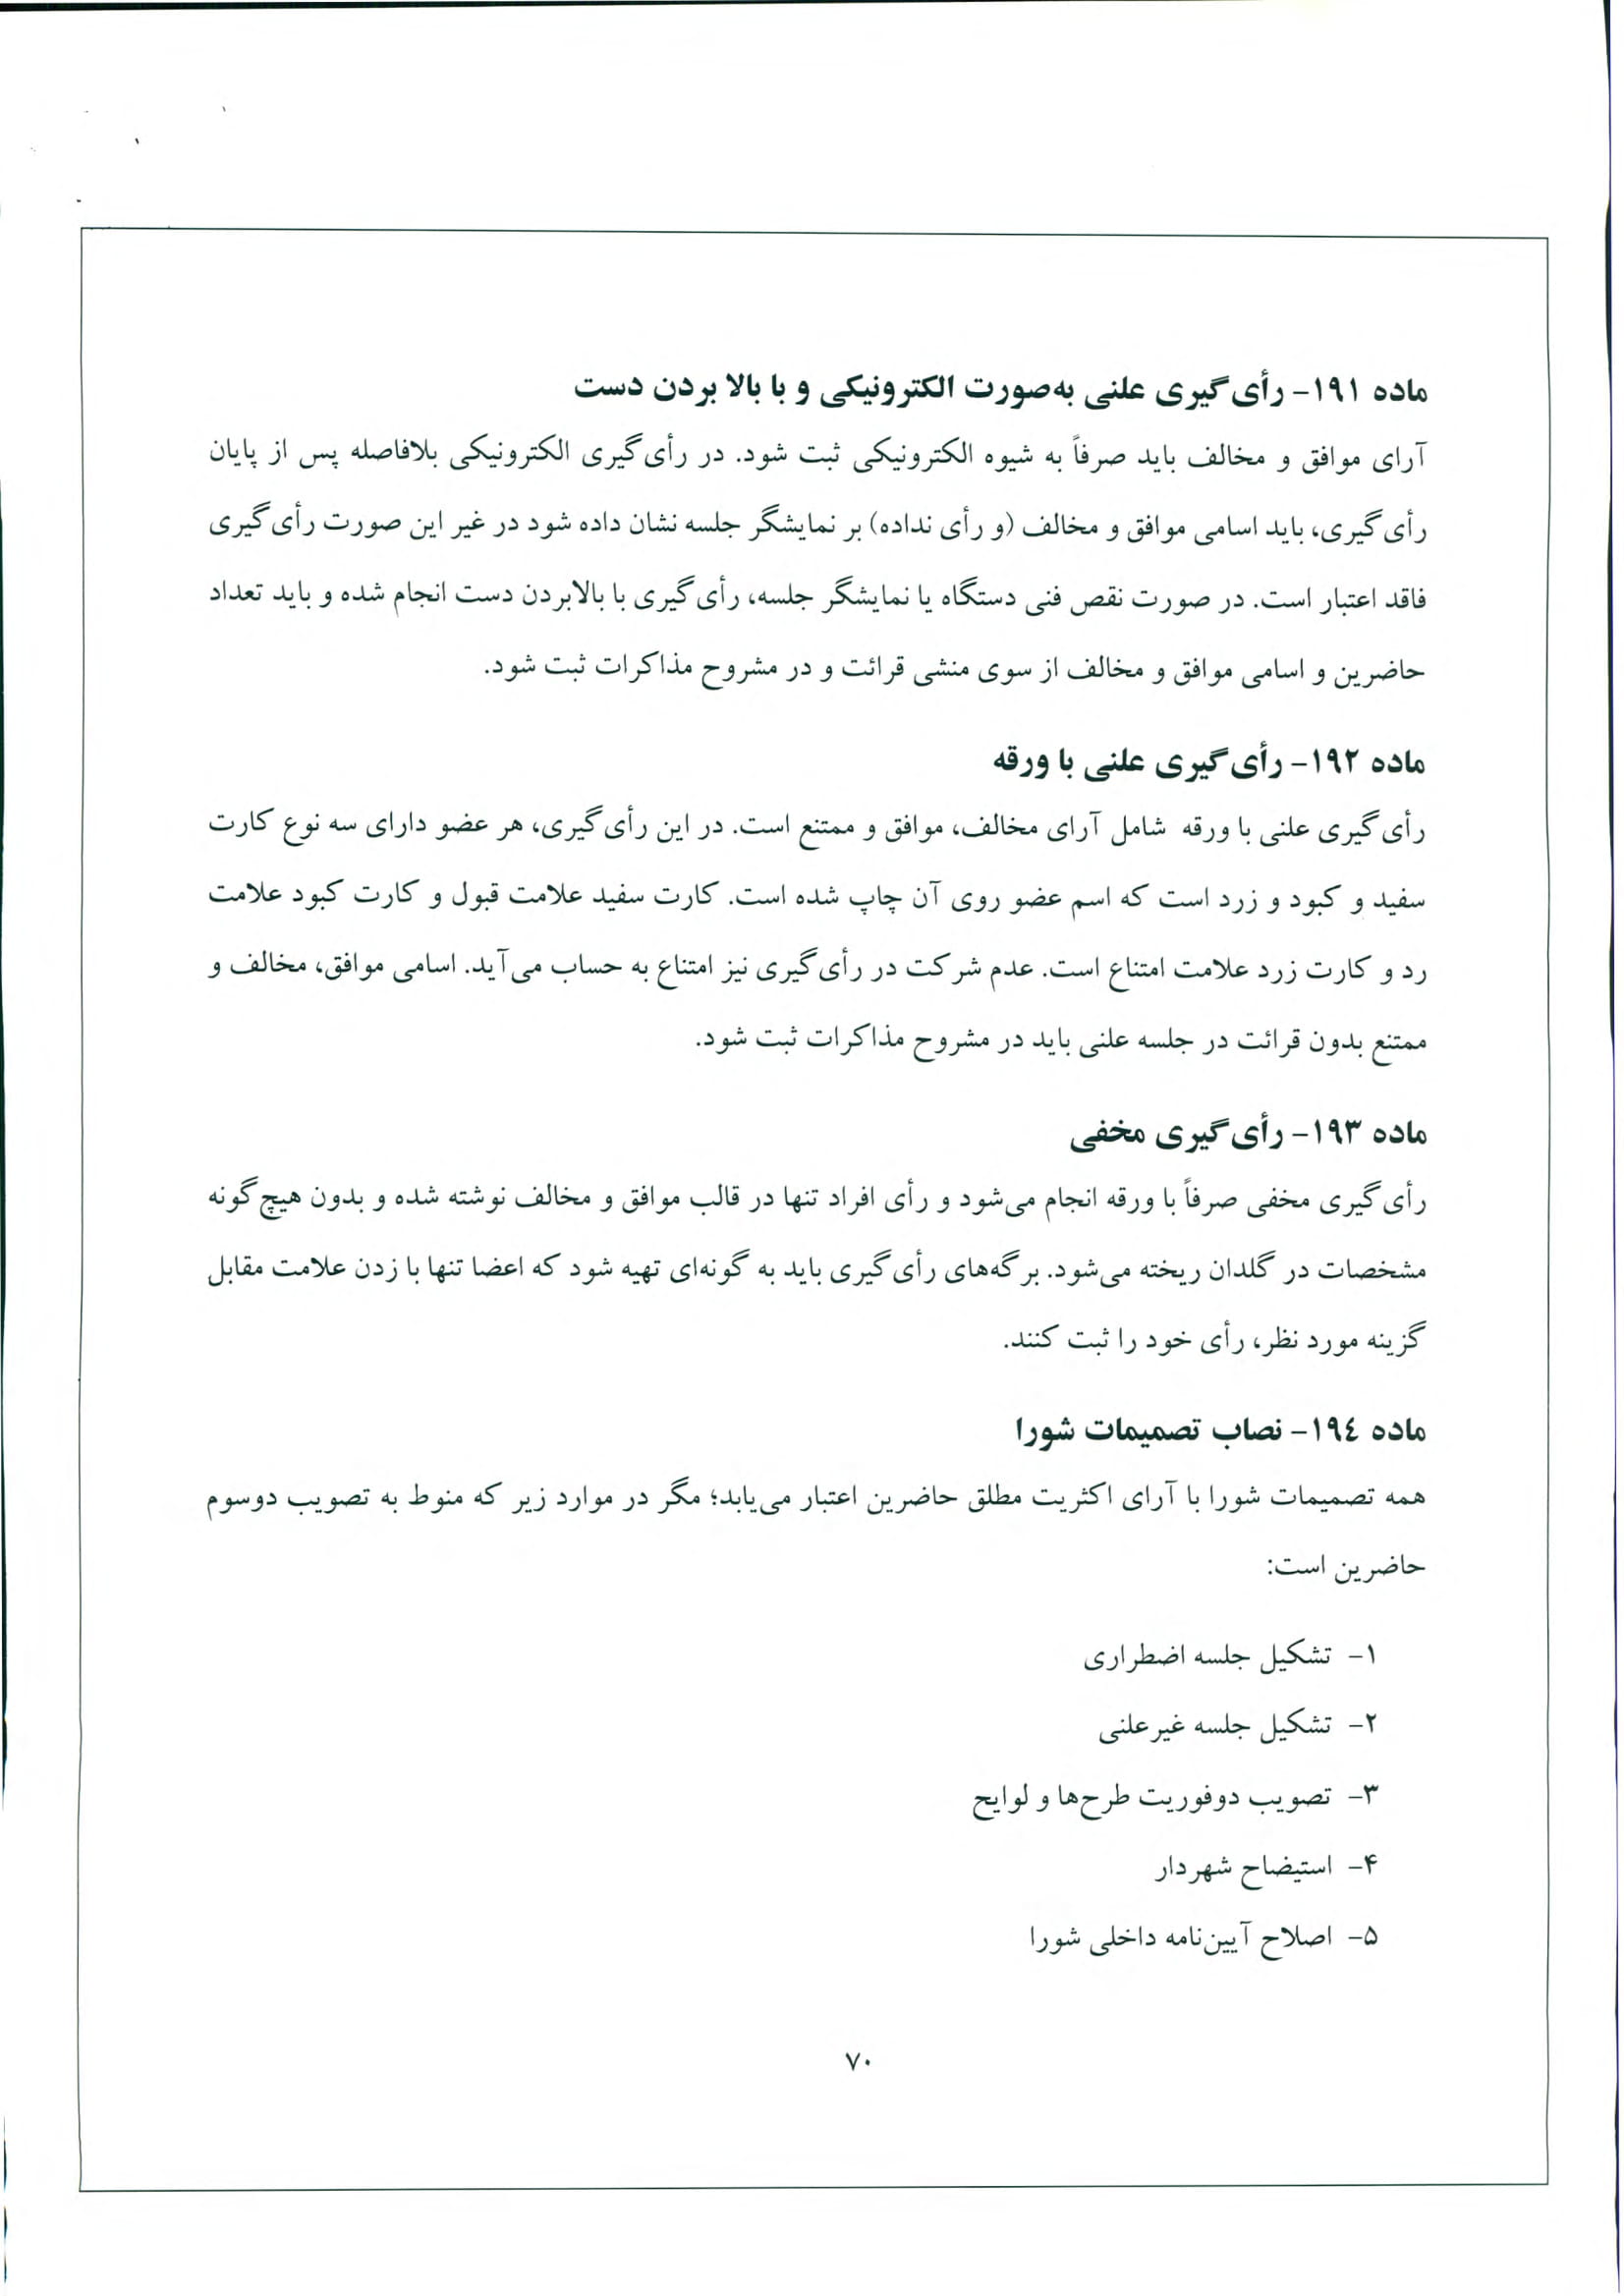 ماده ۱۹۱- رأی‌گیری علنی به‌صورت الکترونیکی و با بالا بردن دست
آرای موافق و مخالف باید صرفاً به شیوه الکترونیکی ثبت شود. در رأی‌گیری الکترونیکی بلافاصله پس از پایان
رأی‌گیری، باید اسامی موافق و مخالف (و رأی نداده) بر نمایشگر جلسه نشان داده شود در غیر این صورت رأی‌گیری
فاقد اعتبار است. در صورت نقص فنی دستگاه یا نمایشگر جلسه، رأی‌گیری با بالابردن دست انجام شده و باید تعداد
حاضرین و اسامی موافق و مخالف از سوی منشی قرائت و در مشروح مذاکرات ثبت شود.
ماده ۱۹۲- رأی‌گیری علنی با ورقه
رأی‌گیری علنی با ورقه شامل آرای مخالف، موافق و ممتنع است. در این رأی‌گیری، هر عضو دارای سه نوع کارت
سفید و کبود و زرد است که اسم عضو روی آن چاپ شده است. کارت سفید علامت قبول و کارت کبود علامت
رد و کارت زرد علامت امتناع است. عدم شرکت در رأی‌گیری نیز امتناع به حساب می‌آید. اسامی موافق، مخالف و
ممتنع بدون قرائت در جلسه علنی باید در مشروح مذاکرات ثبت شود.
ماده ۱۹۳- رأی‌گیری مخفی
رأی‌گیری مخفی صرفاً با ورقه انجام می‌شود و رأی افراد تنها در قالب موافق و مخالف نوشته شده و بدون هیچ‌گونه
مشخصات در گلدان ریخته می‌شود. برگه‌های رأی‌گیری باید به گونه‌ای تهیه شود که اعضا تنها با زدن علامت مقابل
گزینه مورد نظر، رأی خود را ثبت کنند.
ماده ۱۹٤- نصاب تصمیمات شورا
همه تصمیمات شورا با آرای اکثریت مطلق حاضرین اعتبار می‌یابد؛ مگر در موارد زیر که منوط به تصویب دوسوم
حاضرین است:
۱- تشکیل جلسه اضطراری
۲- تشکیل جلسه غیرعلنی
۳- تصویب دوفوریت طرح‌ها و لوایح
۴- استیضاح شهردار
۵- اصلاح آیین‌نامه داخلی شورا
۷۰